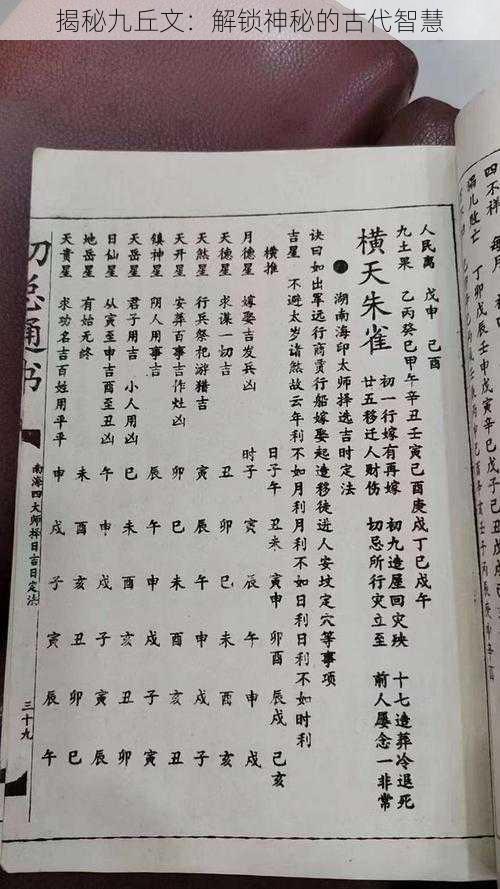 揭秘九丘文：解锁神秘的古代智慧
四不祥 每月
人民离 戊申 己酉
九土果 乙丙癸巳甲午辛丑壬寅己酉庚戌丁巳戊午
横天朱雀 初一行嫁有再嫁 初九造屋回灾殃 十七造葬冷退死
廿五移迁人财伤 切忌所行灾立至 前人屡念一非常
湖南海印太师择选吉时定法
诀曰如出军远行商贾行船嫁娶起造移徒进人安坟定穴等事项
吉星 不避太岁诸煞故云年利不如月利月利不如日利日利不如时利
横推 日子午 丑未 寅申 卯酉 辰戌 己亥
月德星 嫁娶吉发兵凶 时子 寅 辰 午 申 戌
天德星 求谋一切吉 丑 卯 巳 未 酉 亥
天煞星 行兵祭祀游猎吉 寅 辰 午 申 戌 子
天开星 安葬百事吉作灶凶 卯 巳 未 酉 亥 丑
镇神星 阴人用事吉 辰 午 申 戌 子 寅
天岳星 君子用吉 小人用凶 巳 未 酉 亥 丑 卯
日仙星 从寅至申吉酉至丑凶 午 申 戌 子 寅 辰
地岳星 有始无终 未 酉 亥 丑 卯 巳
天贵星 求功名吉百姓用平平 申 戌 子 寅 辰 午
通书
南海四大师择日吉日定法
三十九